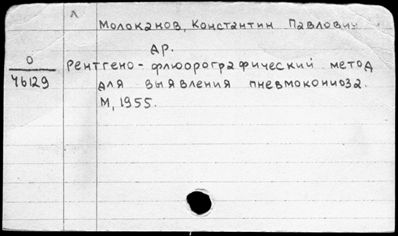 л
Молоканов, Константин Павлович
др.
О
46129
Рентгено-флюорографический метод
для выявления пневмокониоза.
М, 1955.